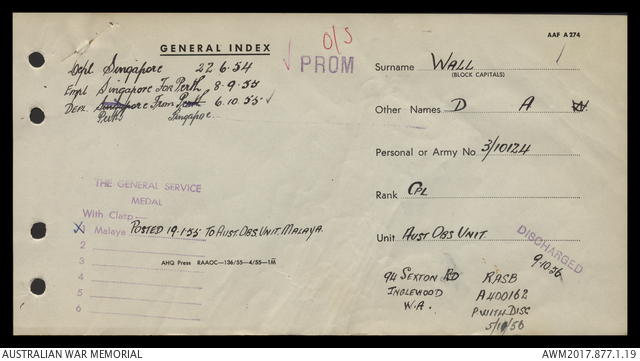 AAF A 274
GENERAL INDEX
O/S
PROM
Depl Singapore 22.6.54
Empl Singapore For Perth 8.9.55
Depl Singapore From Perth 6.10.55
Perth Singapore
Surname WALL
(BLOCK CAPITALS)
Other Names D A
Personal or Army No 3/10124
Rank CPL
Unit AUST OBS UNIT
THE GENERAL SERVICE
MEDAL
With Clasp
1 Malaya POSTED 19.1.55 TO AUST. OBS. UNIT. MALAYA.
2
3
4
5
6
AHQ Press RAAOC—136/55—4/55—1M
DISCHARGED
9.10.56
94 SEXTON RD
INGLEWOOD
W.A.
RASB
A400162
P WITH DISC
AUSTRALIAN WAR MEMORIAL
AWM2017.877.1.19